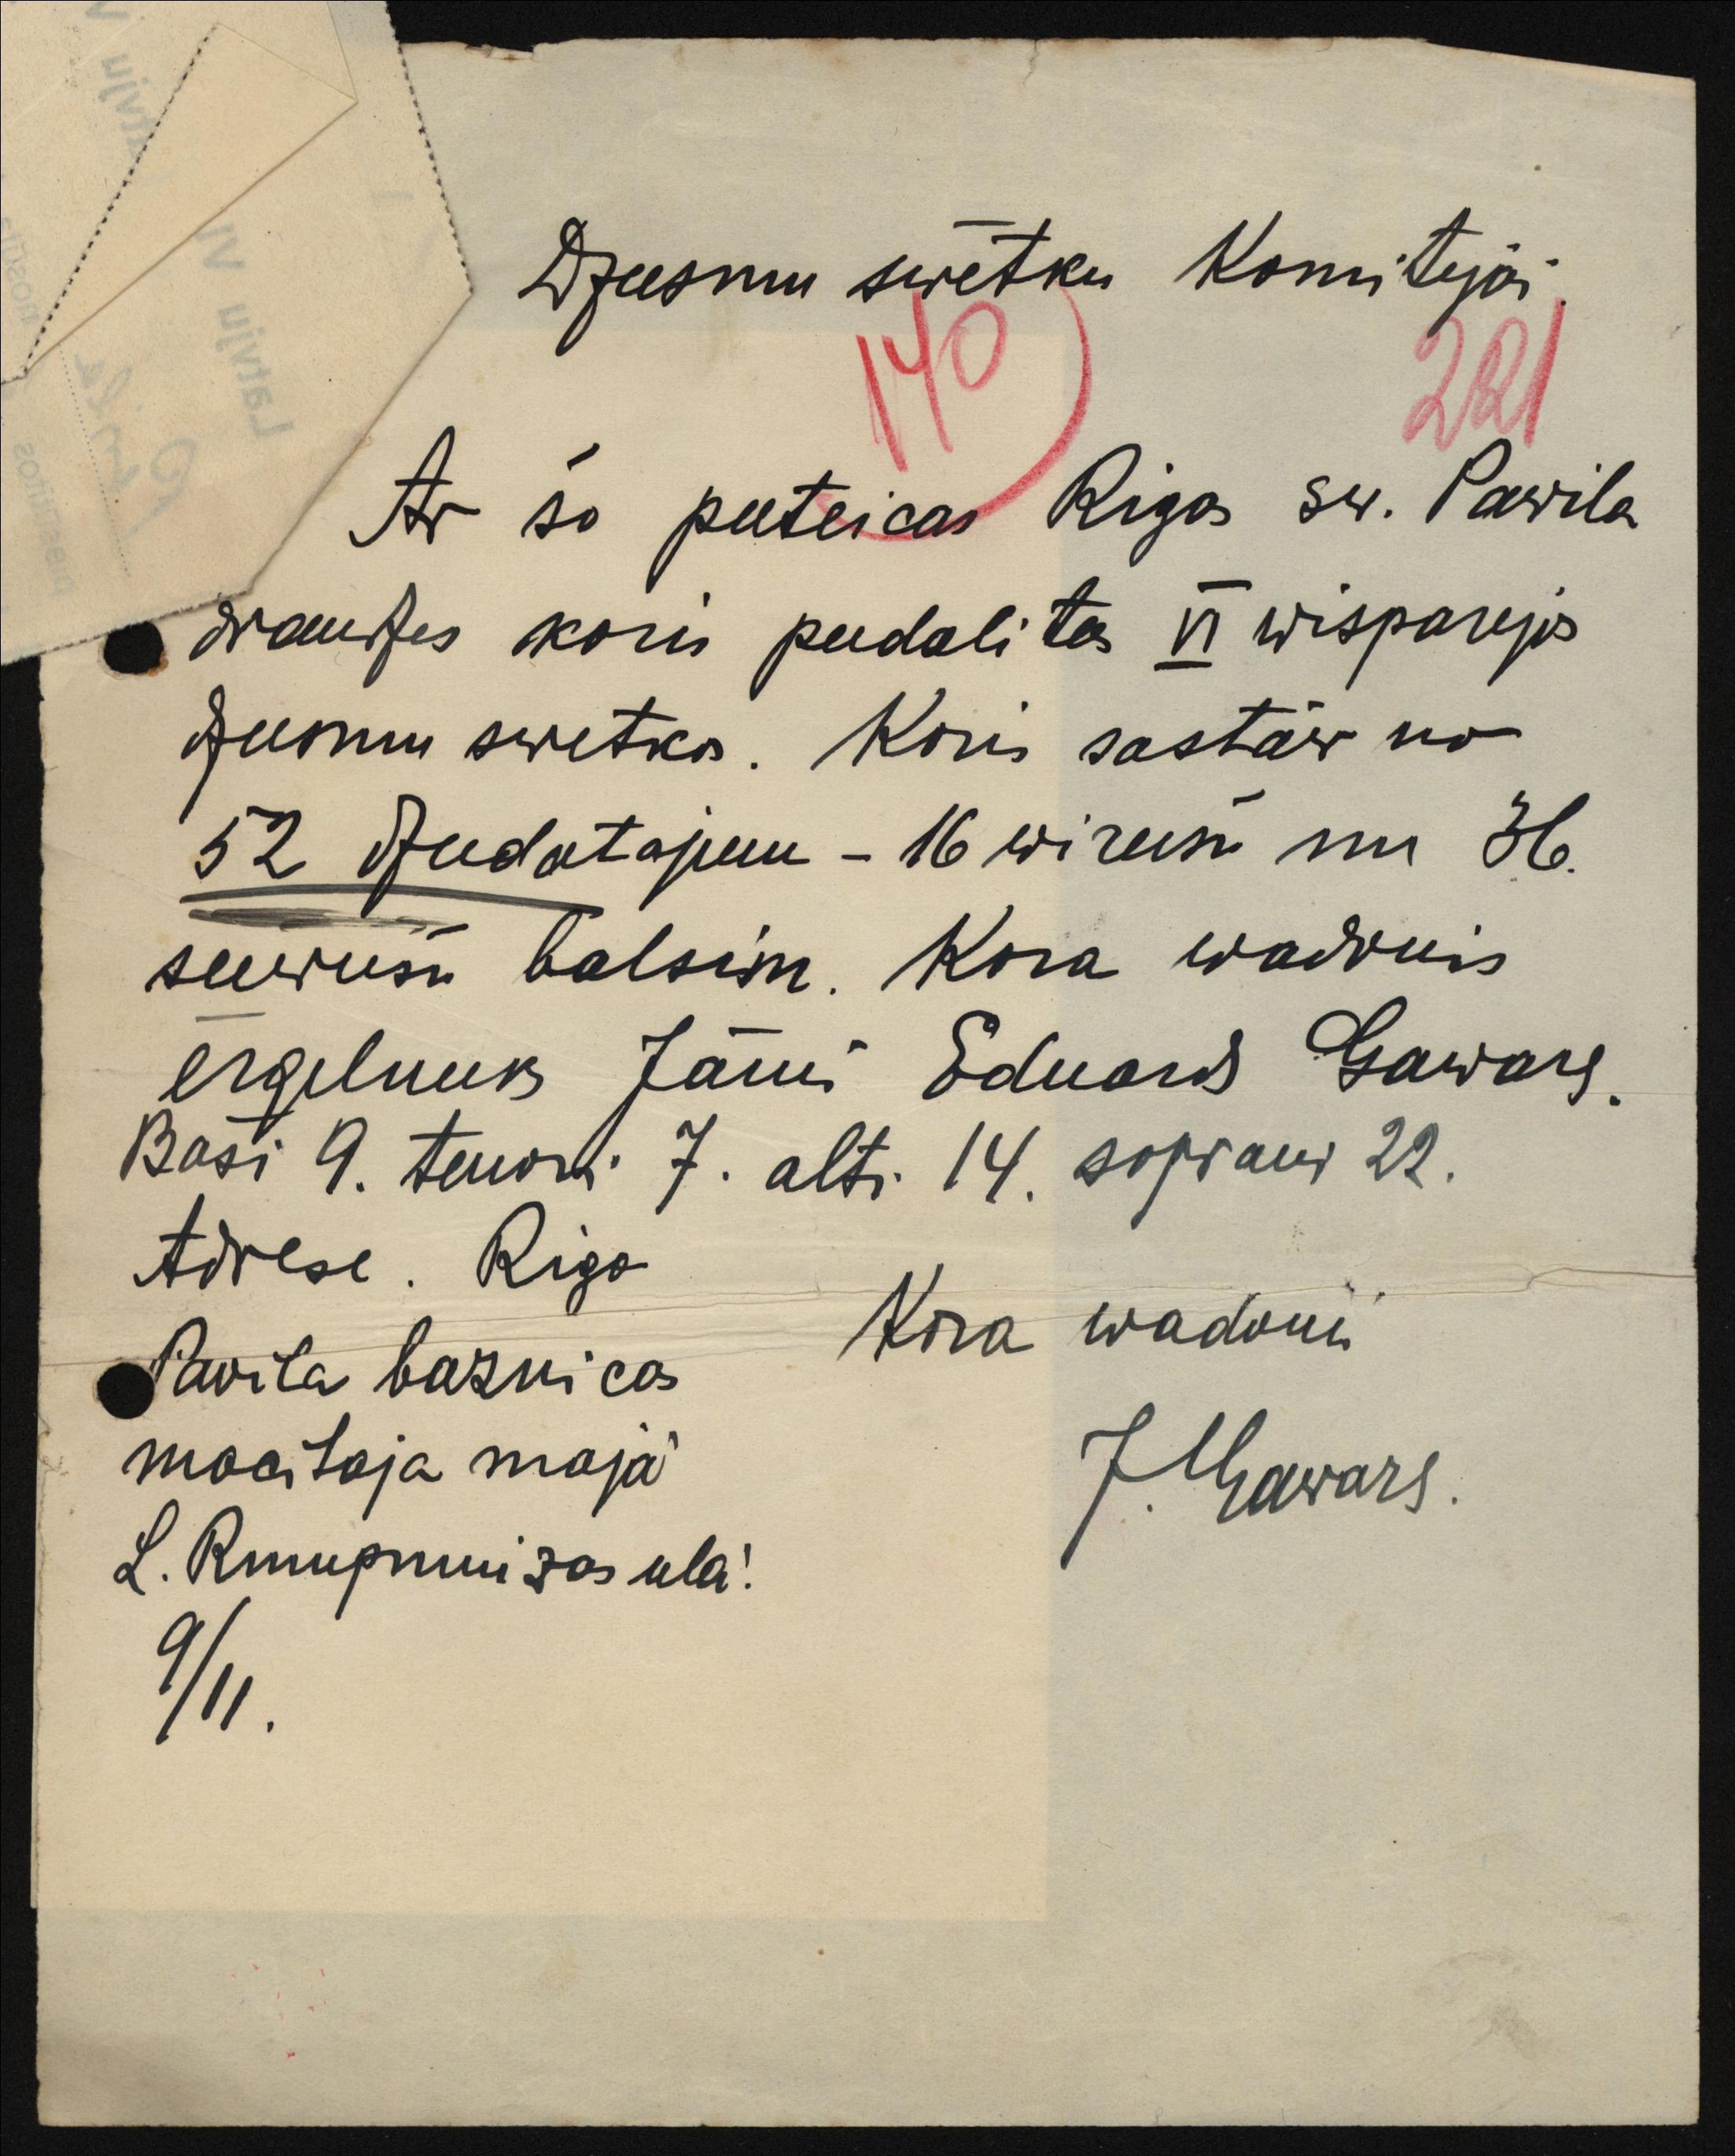 Dzeesmu swētku Komitejai.
140
221
Ar šo peeteicas Rigas sw. Pawila
draudzes koris peedalitas VI wisparejos
dzeesmu swetkos. Koris sastāw no
52 dzeedatajeem - 16 wireešu un 36.
seeweešu balsim. Kora wadonis
ērgelneeks Jānis Eduards Gawars.
Basi 9. tenori 7. alti 14. soprani 22.
Adrese. Riga
Pavila baznicas
macitaja majā
L. Kmupmuizas ielā.
9/11.
Kora wadonis
J. Gawars.
Latvju VI